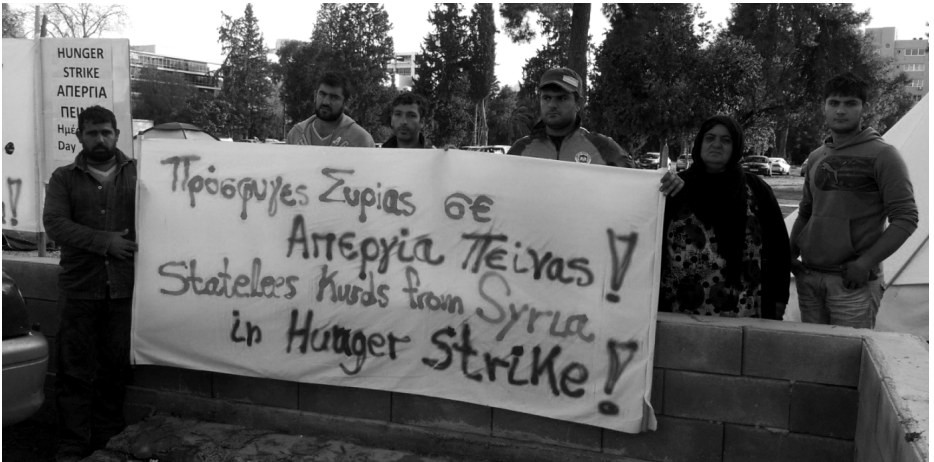 HUNGER
STRIKE
ΑΠΕΡΓΙΑ
Day
Πρόσφυγες Συρίας σε
Απεργία Πείνας!
Stateless Kurds from Syria
in Hunger Strike!
!